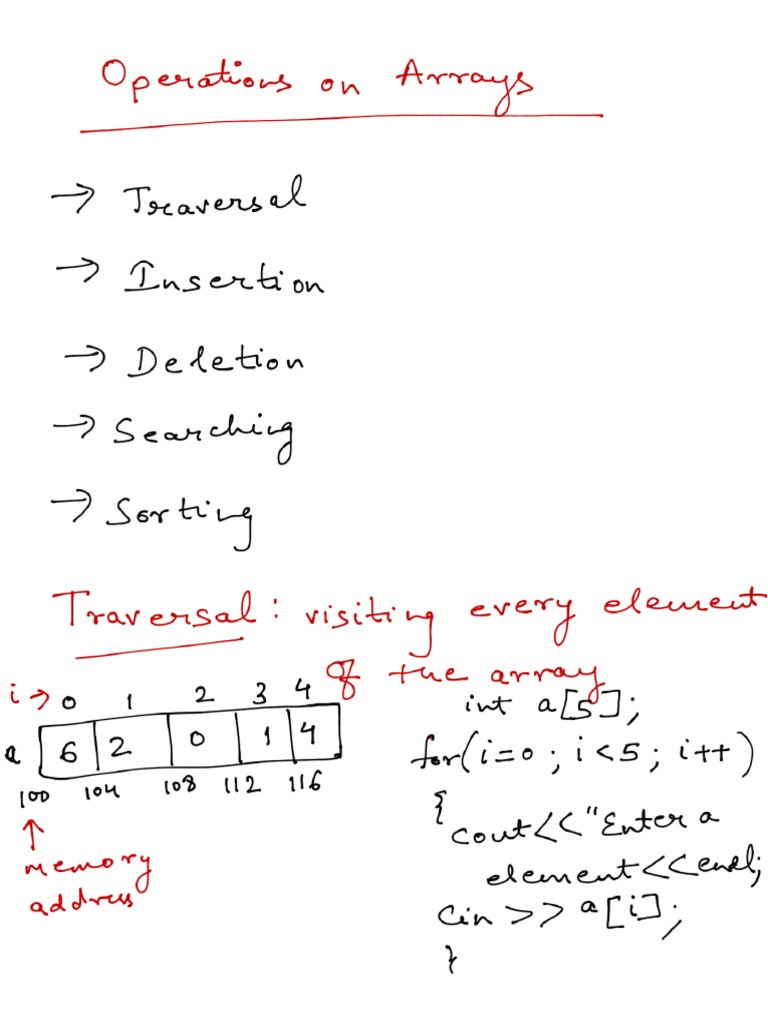 Operations on Arrays
→ Traversal
→ Insertion
→ Deletion
→ Searching
→ Sorting
Traversal: visiting every element
of the array
i→ 0 1 2 3 4
a 6 2 0 1 4
100 104 108 112 116
↑
memory
address
int a[5];
for(i=0; i<5; i++)
{
cout<<"Enter a
element<<endl;
cin>>a[i];
}